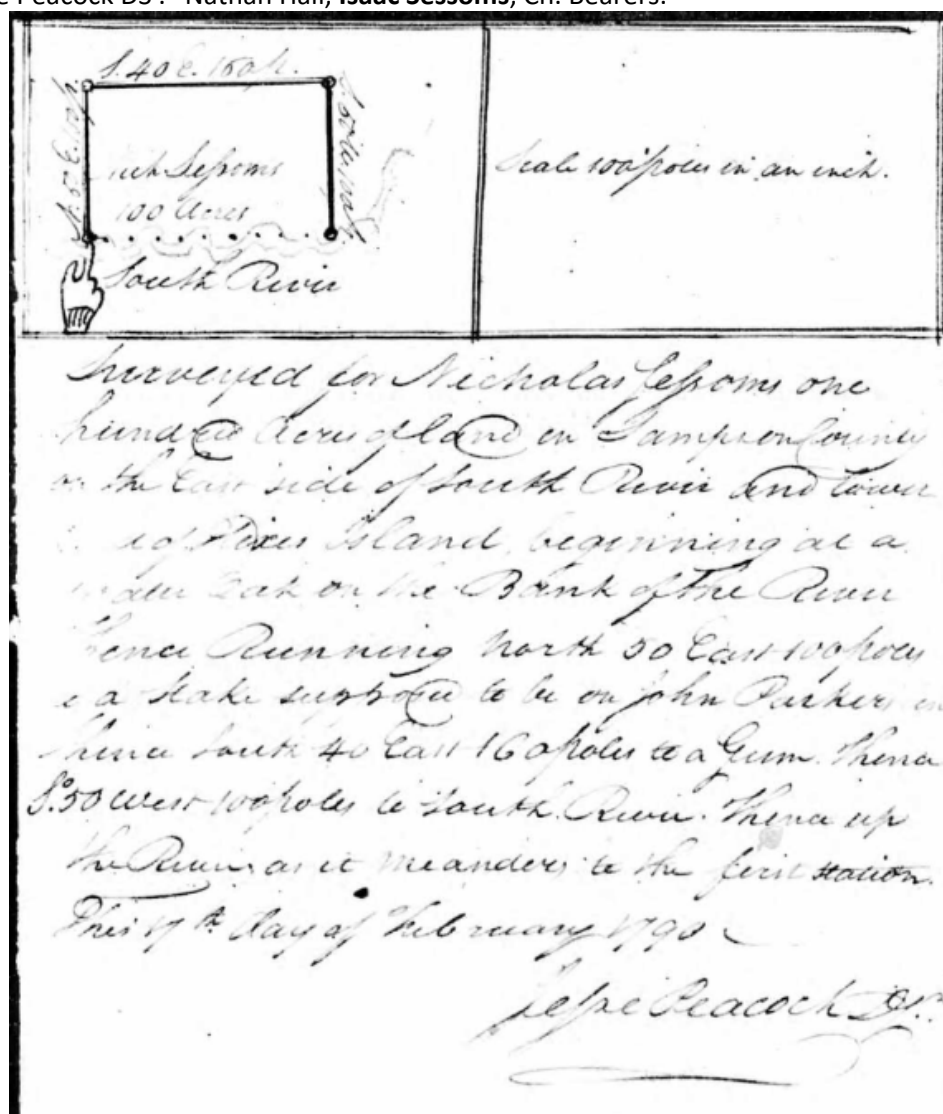 e Peacock DS . Nathan Hall, Isaac Sessoms, Ch. Bearers.
S. 40 E. 160 p.
N. 50 E. 100 p.
S. 50 W. 100 p.
ick Sessoms
100 Acres
South River
Scale 100 poles in an inch.
Surveyed for Nicholas Sessoms one
hundred Acres of land in Sampson County
on the East side of South River and lower
of Island, beginning at a
water Oak on the Bank of the River
hence Running North 50 East 100 poles
a Stake supposed to be on John Parkers
thence South 40 East 160 poles to a Gum. thence
So. 50 West 100 poles to South River. thence up
the River as it meanders to the first station.
This 17th day of February 1790
Jesse Peacock DS.